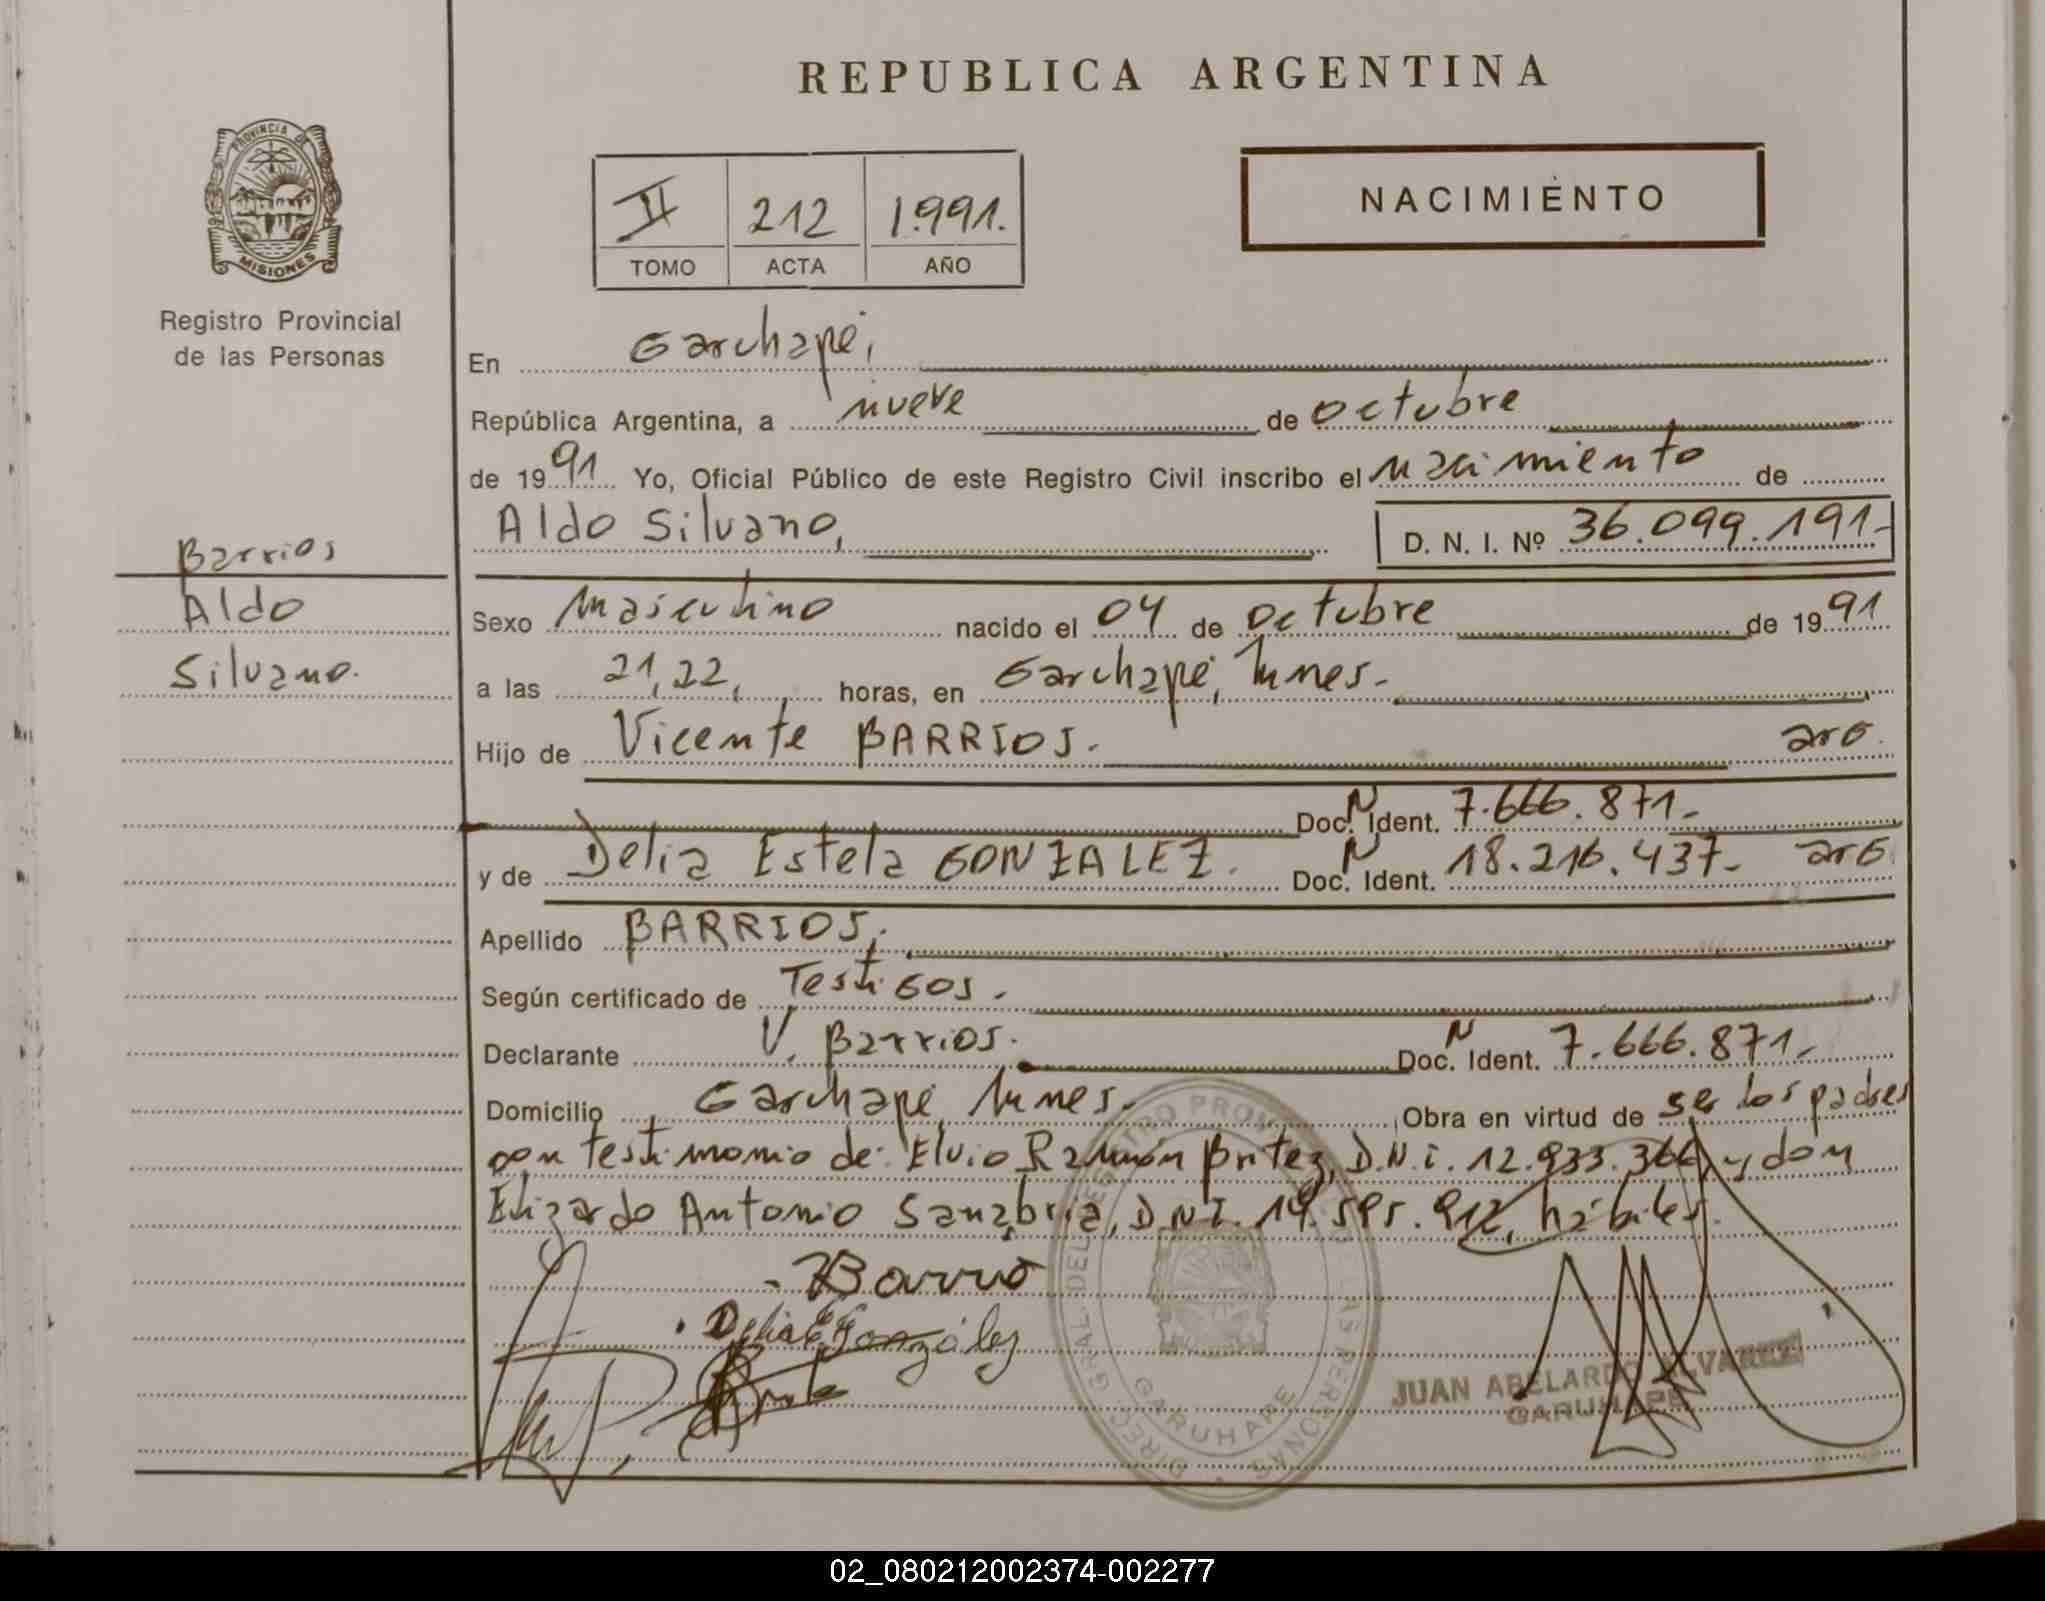 REPUBLICA ARGENTINA
PROVINCIA DE
MISIONES
Registro Provincial
de las Personas
II 212 1.991.
TOMO ACTA AÑO
NACIMIENTO
En Garuhapé,
República Argentina, a nueve de octubre
de 1991 Yo, Oficial Público de este Registro Civil inscribo el nacimiento de
Aldo Silvano, D. N. I. Nº 36.099.191-
Barrios
Aldo
Silvano.
Sexo Masculino nacido el 04 de octubre de 1991
a las 21,22, horas, en Garuhapé,
Hijo de Vicente BARRIOS. arg.
Doc. N Ident. 7.666.871-
y de Delia Estela GONZALEZ. Doc. N Ident. 18.216.437- arg.
Apellido BARRIOS,
Según certificado de Testigos.
Declarante V. Barrios. Doc. N Ident. 7.666.871-
Domicilio Garuhapé, Obra en virtud de ser los padres
con testimonio de: Elvio Ramón Britez, D.N.i. 12.933.366, y don
Elizardo Antonio Sanabria, D.N.I. 14.595.912, hábiles.
Barrio
Delia E González
DIREC. GRAL. DEL REGISTRO PROVINCIAL DE LAS PERSONAS
GARUHAPE
JUAN ABELARDO ALVAREZ
GARUHAPE
02_080212002374-002277